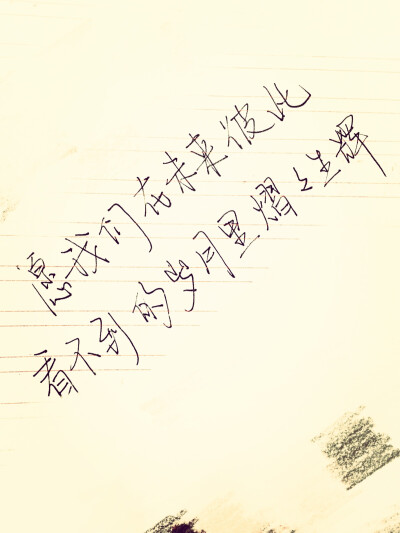 愿我们在未来彼此
看不到的岁月里熠々生辉